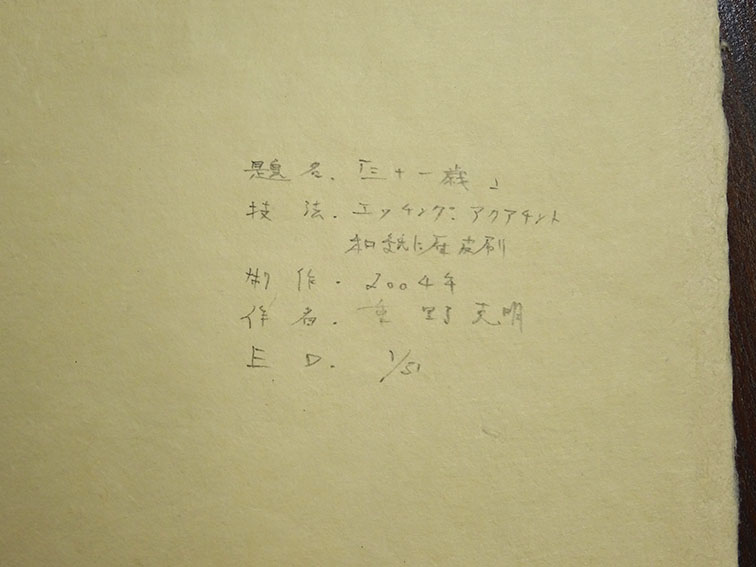 題名.「三十一歳」
技法.エッチング:アクアチント
和紙に雁皮刷
制作.2004年
作者.重野克明
E D. 1/51